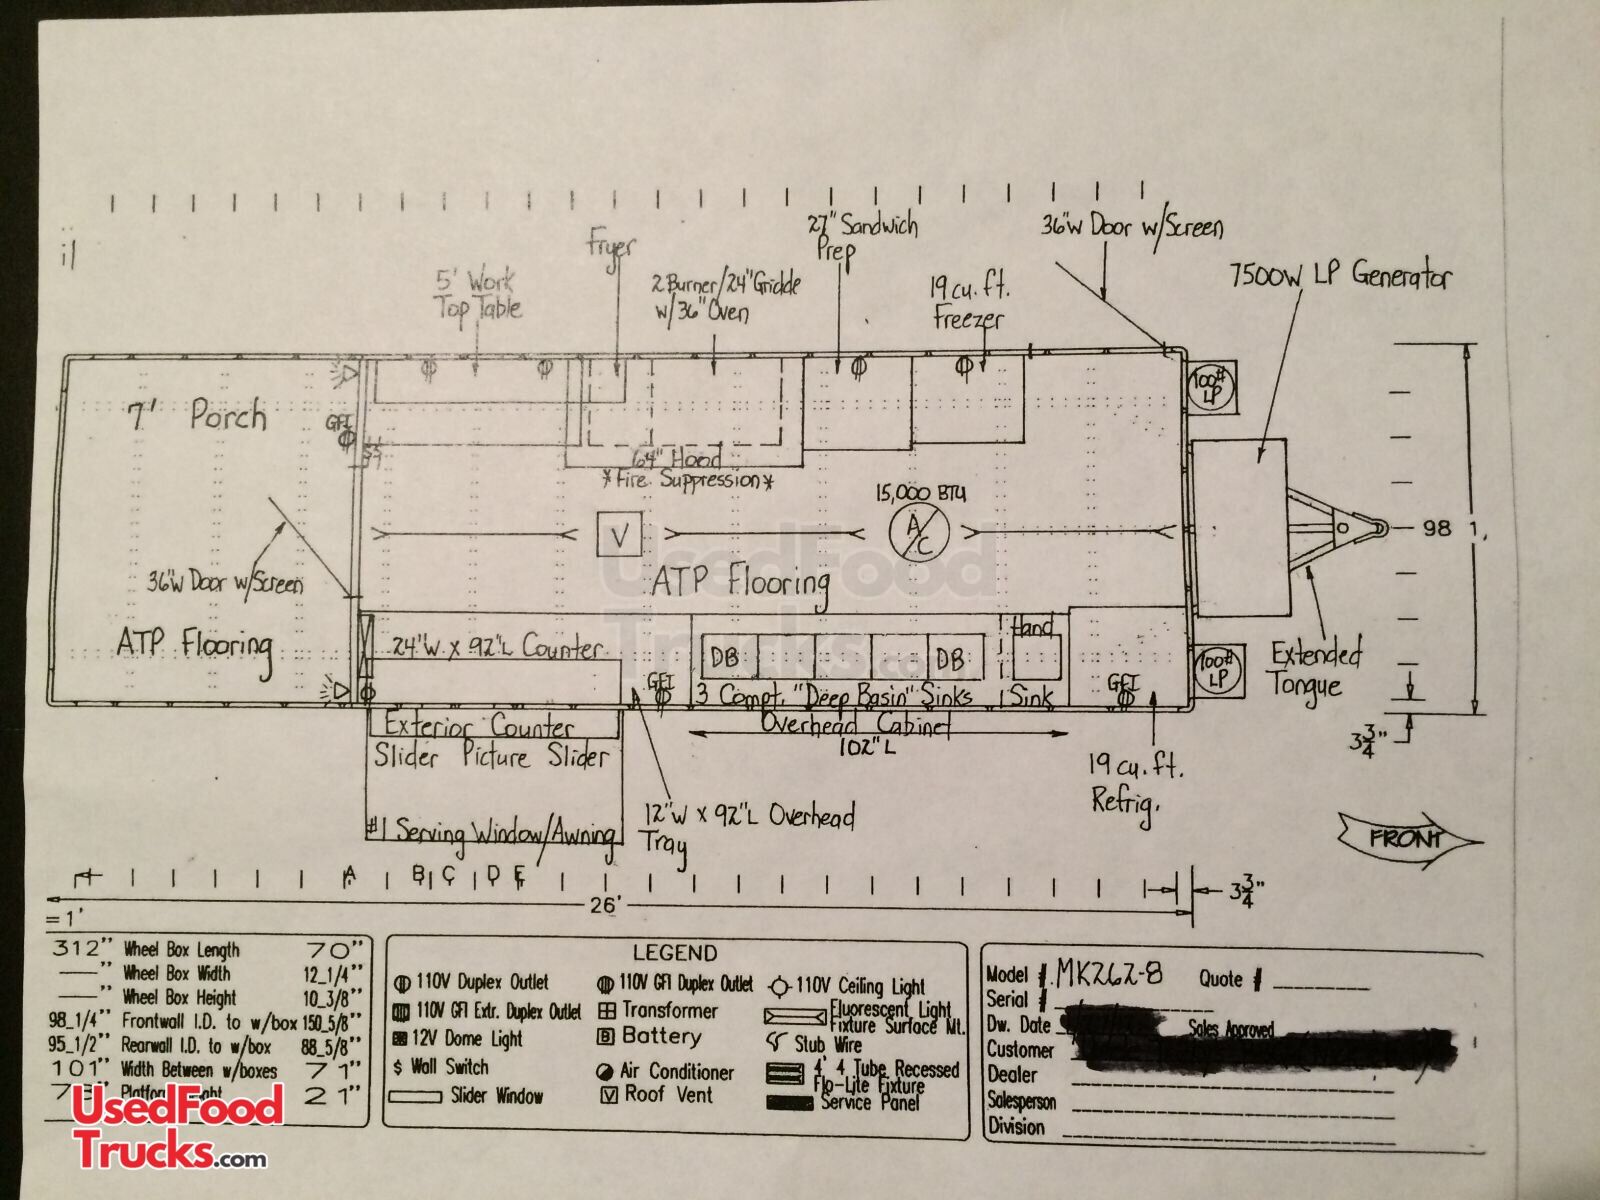 i/
5' Work
Top Table
Fryer
2 Burner/24" Gridde
w/36" Oven
27" Sandwich
Prep
19 cu. ft.
Freezer
36"w Door w/Screen
7500W LP Generator
7' Porch
GFI
64" Hood
*Fire Suppression*
15,000 BTU
V
A/C
100#
LP
98 1,
36"w Door w/Screen
ATP Flooring
ATP Flooring
24"W x 92"L Counter
GFI
DB
DB
3 Compt. "Deep Basin" Sinks
Hand
Sink
GFI
100#
LP
Extended
Tongue
Exterior Counter
Slider Picture Slider
Overhead Cabinet
102" L
3 3/4"
19 cu. ft.
Refrig.
#1 Serving Window/Awning
12"W x 92"L Overhead
Tray
FRONT
A B C D E
3 3/4"
26'
=1'
312" Wheel Box Length 70"
—" Wheel Box Width 12_1/4"
—" Wheel Box Height 10_3/8"
98_1/4" Frontwall I.D. to w/box 150_5/8"
95_1/2" Rearwall I.D. to w/box 88_5/8"
101" Width Between w/boxes 71"
21"
LEGEND
110V Duplex Outlet
110V GFI Extr. Duplex Outlet
12V Dome Light
$ Wall Switch
Slider Window
110V GFI Duplex Outlet
Transformer
B Battery
Air Conditioner
V Roof Vent
110V Ceiling Light
Fluorescent Light
Fixture Surface Mt.
Stub Wire
4' 4 Tube Recessed
Flo-Lite Fixture
Service Panel
Model # MK262-8 Quote #
Serial #
Dw. Date
Sales Approved
Customer
Dealer
Salesperson
Division
UsedFood
Trucks.com
UsedFood
Trucks.com